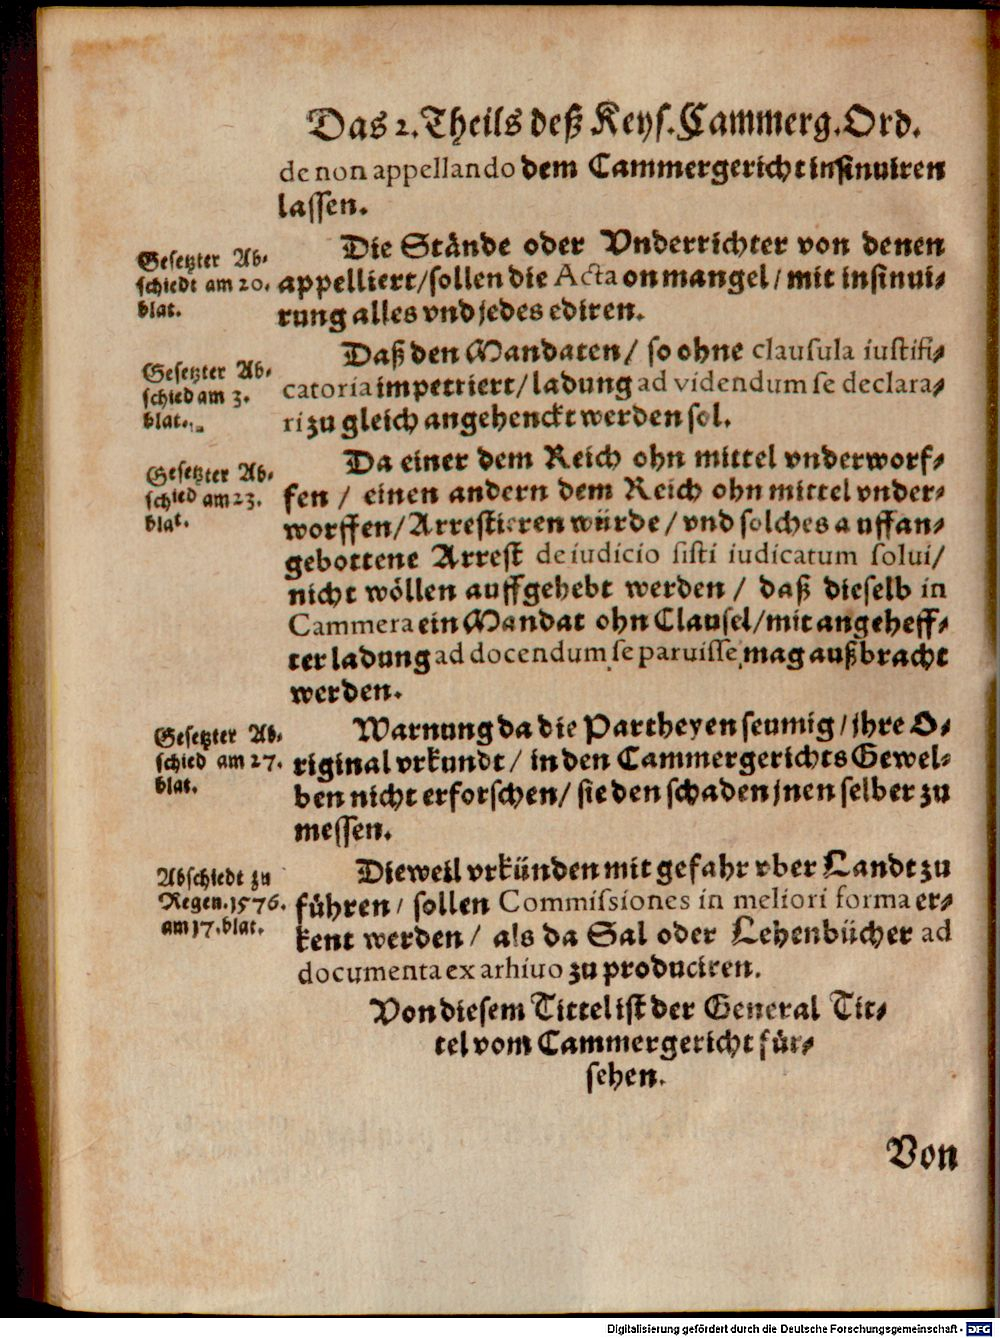 Das 2. Theils deß Keys. Cammerg. Ord.
de non appellando dem Cammergericht insinuiren
lassen.
Gesetzter Ab-
schiedt am 20.
blat.
Die Stände oder Vnderrichter von denen
appelliert/ sollen die Acta on mangel/ mit insinui-
rung alles vnd jedes ediren.
Gesetzter Ab-
schied am 3.
blat.
Daß den Mandaten/ so ohne clausula iustifi-
catoria impetriert/ ladung ad videndum se declara-
ri zu gleich angehenckt werden sol.
Gesetzter Ab-
schied am 23.
blat.
Da einer dem Reich ohn mittel vnderworf-
fen / einen andern dem Reich ohn mittel vnder-
worffen/ Arrestieren würde/ vnd solches auffan-
gebottene Arrest de iudicio sisti iudicatum solui/
nicht wöllen auffgehebt werden / daß dieselb in
Cammera ein Mandat ohn Clausel/ mit angeheff-
ter ladung ad docendum se paruisse, mag außbracht
werden.
Gesetzter Ab-
schied am 27.
blat.
Warnung da die Partheyen seumig/ ihre O-
riginal vrkundt/ in den Cammergerichts Gewel-
ben nicht erforschen/ sie den schaden jnen selber zu
messen.
Abschiedt zu
Regen. 1576.
am 17. blat.
Dieweil vrkünden mit gefahr vber Landt zu
führen/ sollen Commissiones in meliori forma er-
kent werden/ als da Sal oder Lehenbücher ad
documenta ex arhiuo zu produciren.
Von diesem Tittel ist der General Tit-
tel vom Cammergericht für-
sehen.
Von
Digitalisierung gefördert durch die Deutsche Forschungsgemeinschaft - DFG